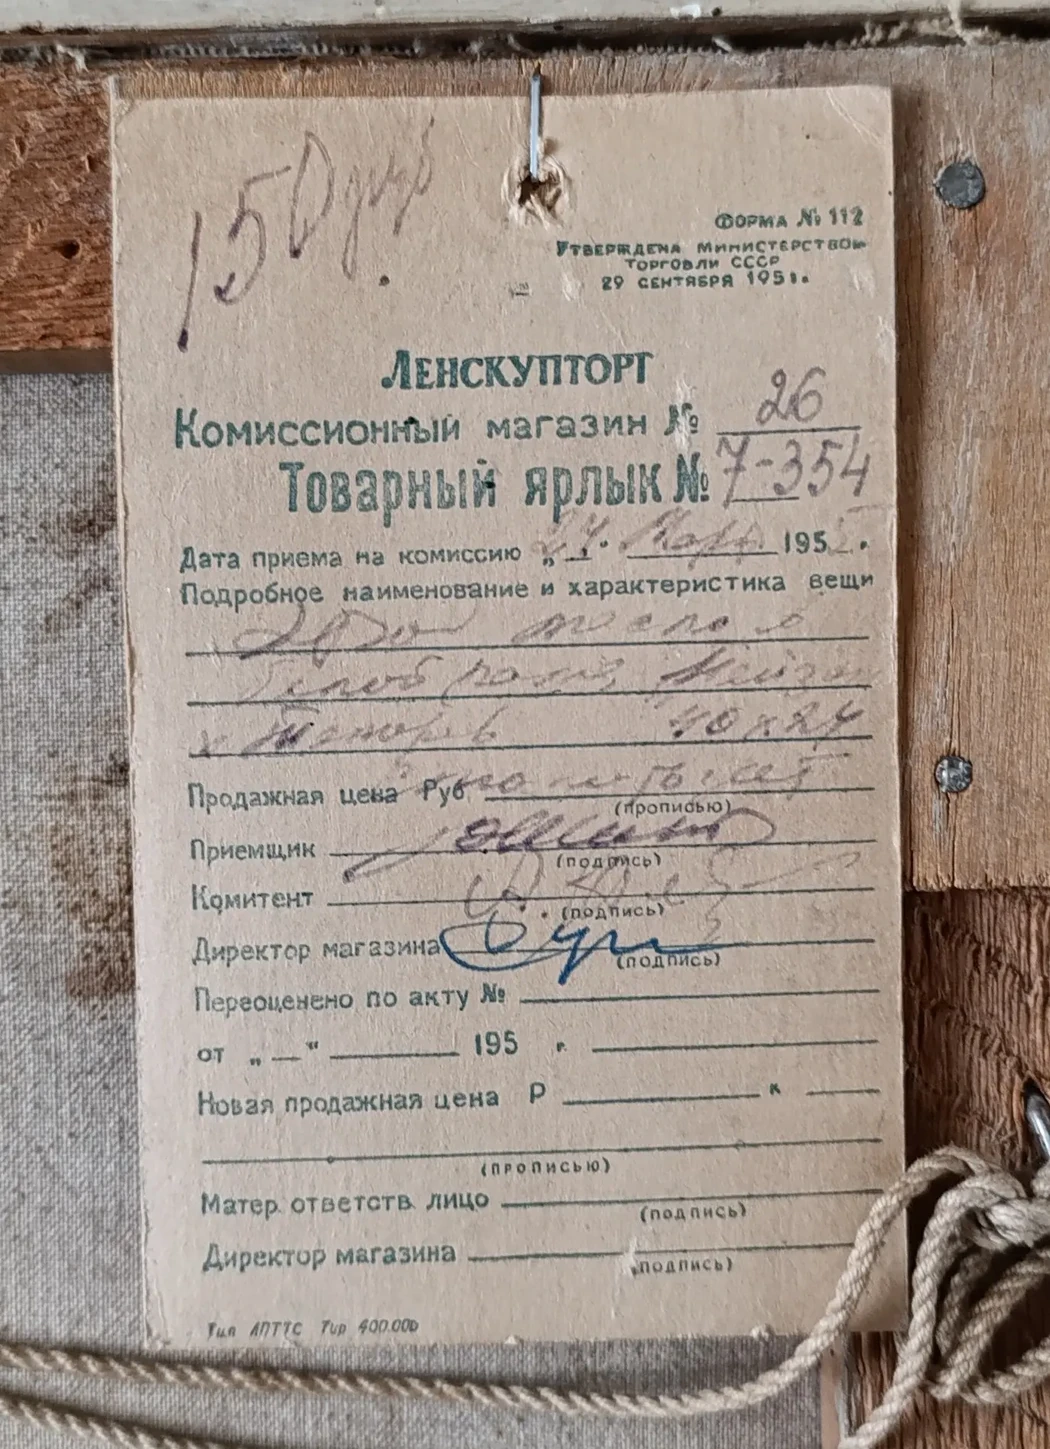 150 дир.
Форма № 112
Утверждена Министерством
торговли СССР
29 сентября 1951 г.
Ленскупторг
Комиссионный магазин № 26
Товарный ярлык № 7-354
Дата приема на комиссию „24" Март 195 .
Подробное наименование и характеристика вещи
масло
40х24
Продажная цена Руб
(прописью)
Приемщик
(подпись)
Комитент
(подпись)
Директор магазина
(подпись)
Переоценено по акту №
от „ — “ 195 г.
Новая продажная цена Р к
(прописью)
Матер. ответств. лицо
(подпись)
Директор магазина
(подпись)
Тип ЛПТТС Тир 400.000